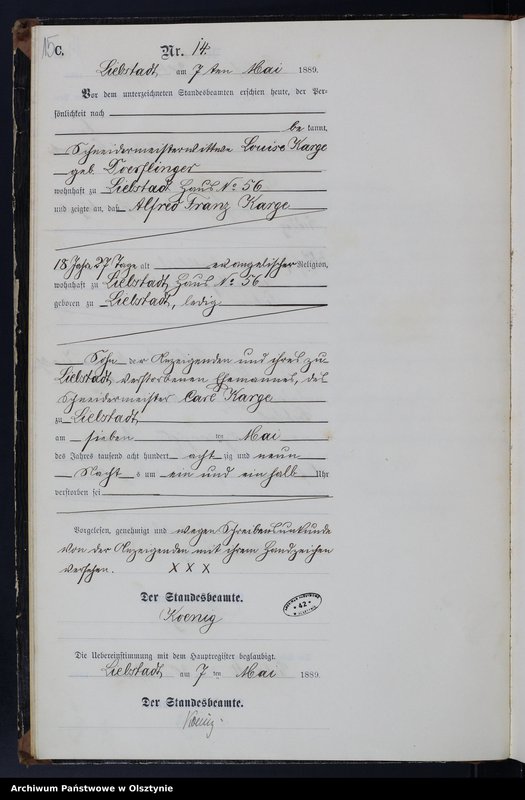 15
C.
Nr. 14.
Liebstadt, am 7 ten Mai 1889.
Vor dem unterzeichneten Standesbeamten erschien heute, der Per-
sönlichkeit nach
be kannt,
Schneidermeisterwittwe Louise Karge
geb. Doerflinger
wohnhaft zu Liebstadt Haus No 56
und zeigte an, daß Alfred Franz Karge
18 Jahr, 27 Tage alt evangelischer Religion,
wohnhaft zu Liebstadt, Haus No 56
geboren zu Liebstadt, ledig
Sohn der Anzeigenden und ihres zu
Liebstadt, verstorbenen Ehemannes, des
Schneidermeister Carl Karge
zu Liebstadt,
am sieben ten Mai
des Jahres tausend acht hundert acht zig und neun
Nacht s um ein und ein halb Uhr
verstorben sei
Vorgelesen, genehmigt und wegen Schreibensunkunde
von der Anzeigenden mit ihrem Handzeichen
versehen. X X X
Der Standesbeamte.
Koenig
* 42 *
Die Uebereinstimmung mit dem Hauptregister beglaubigt.
Liebstadt, am 7 ten Mai 1889.
Der Standesbeamte.
Koenig.
Archiwum Państwowe w Olsztynie